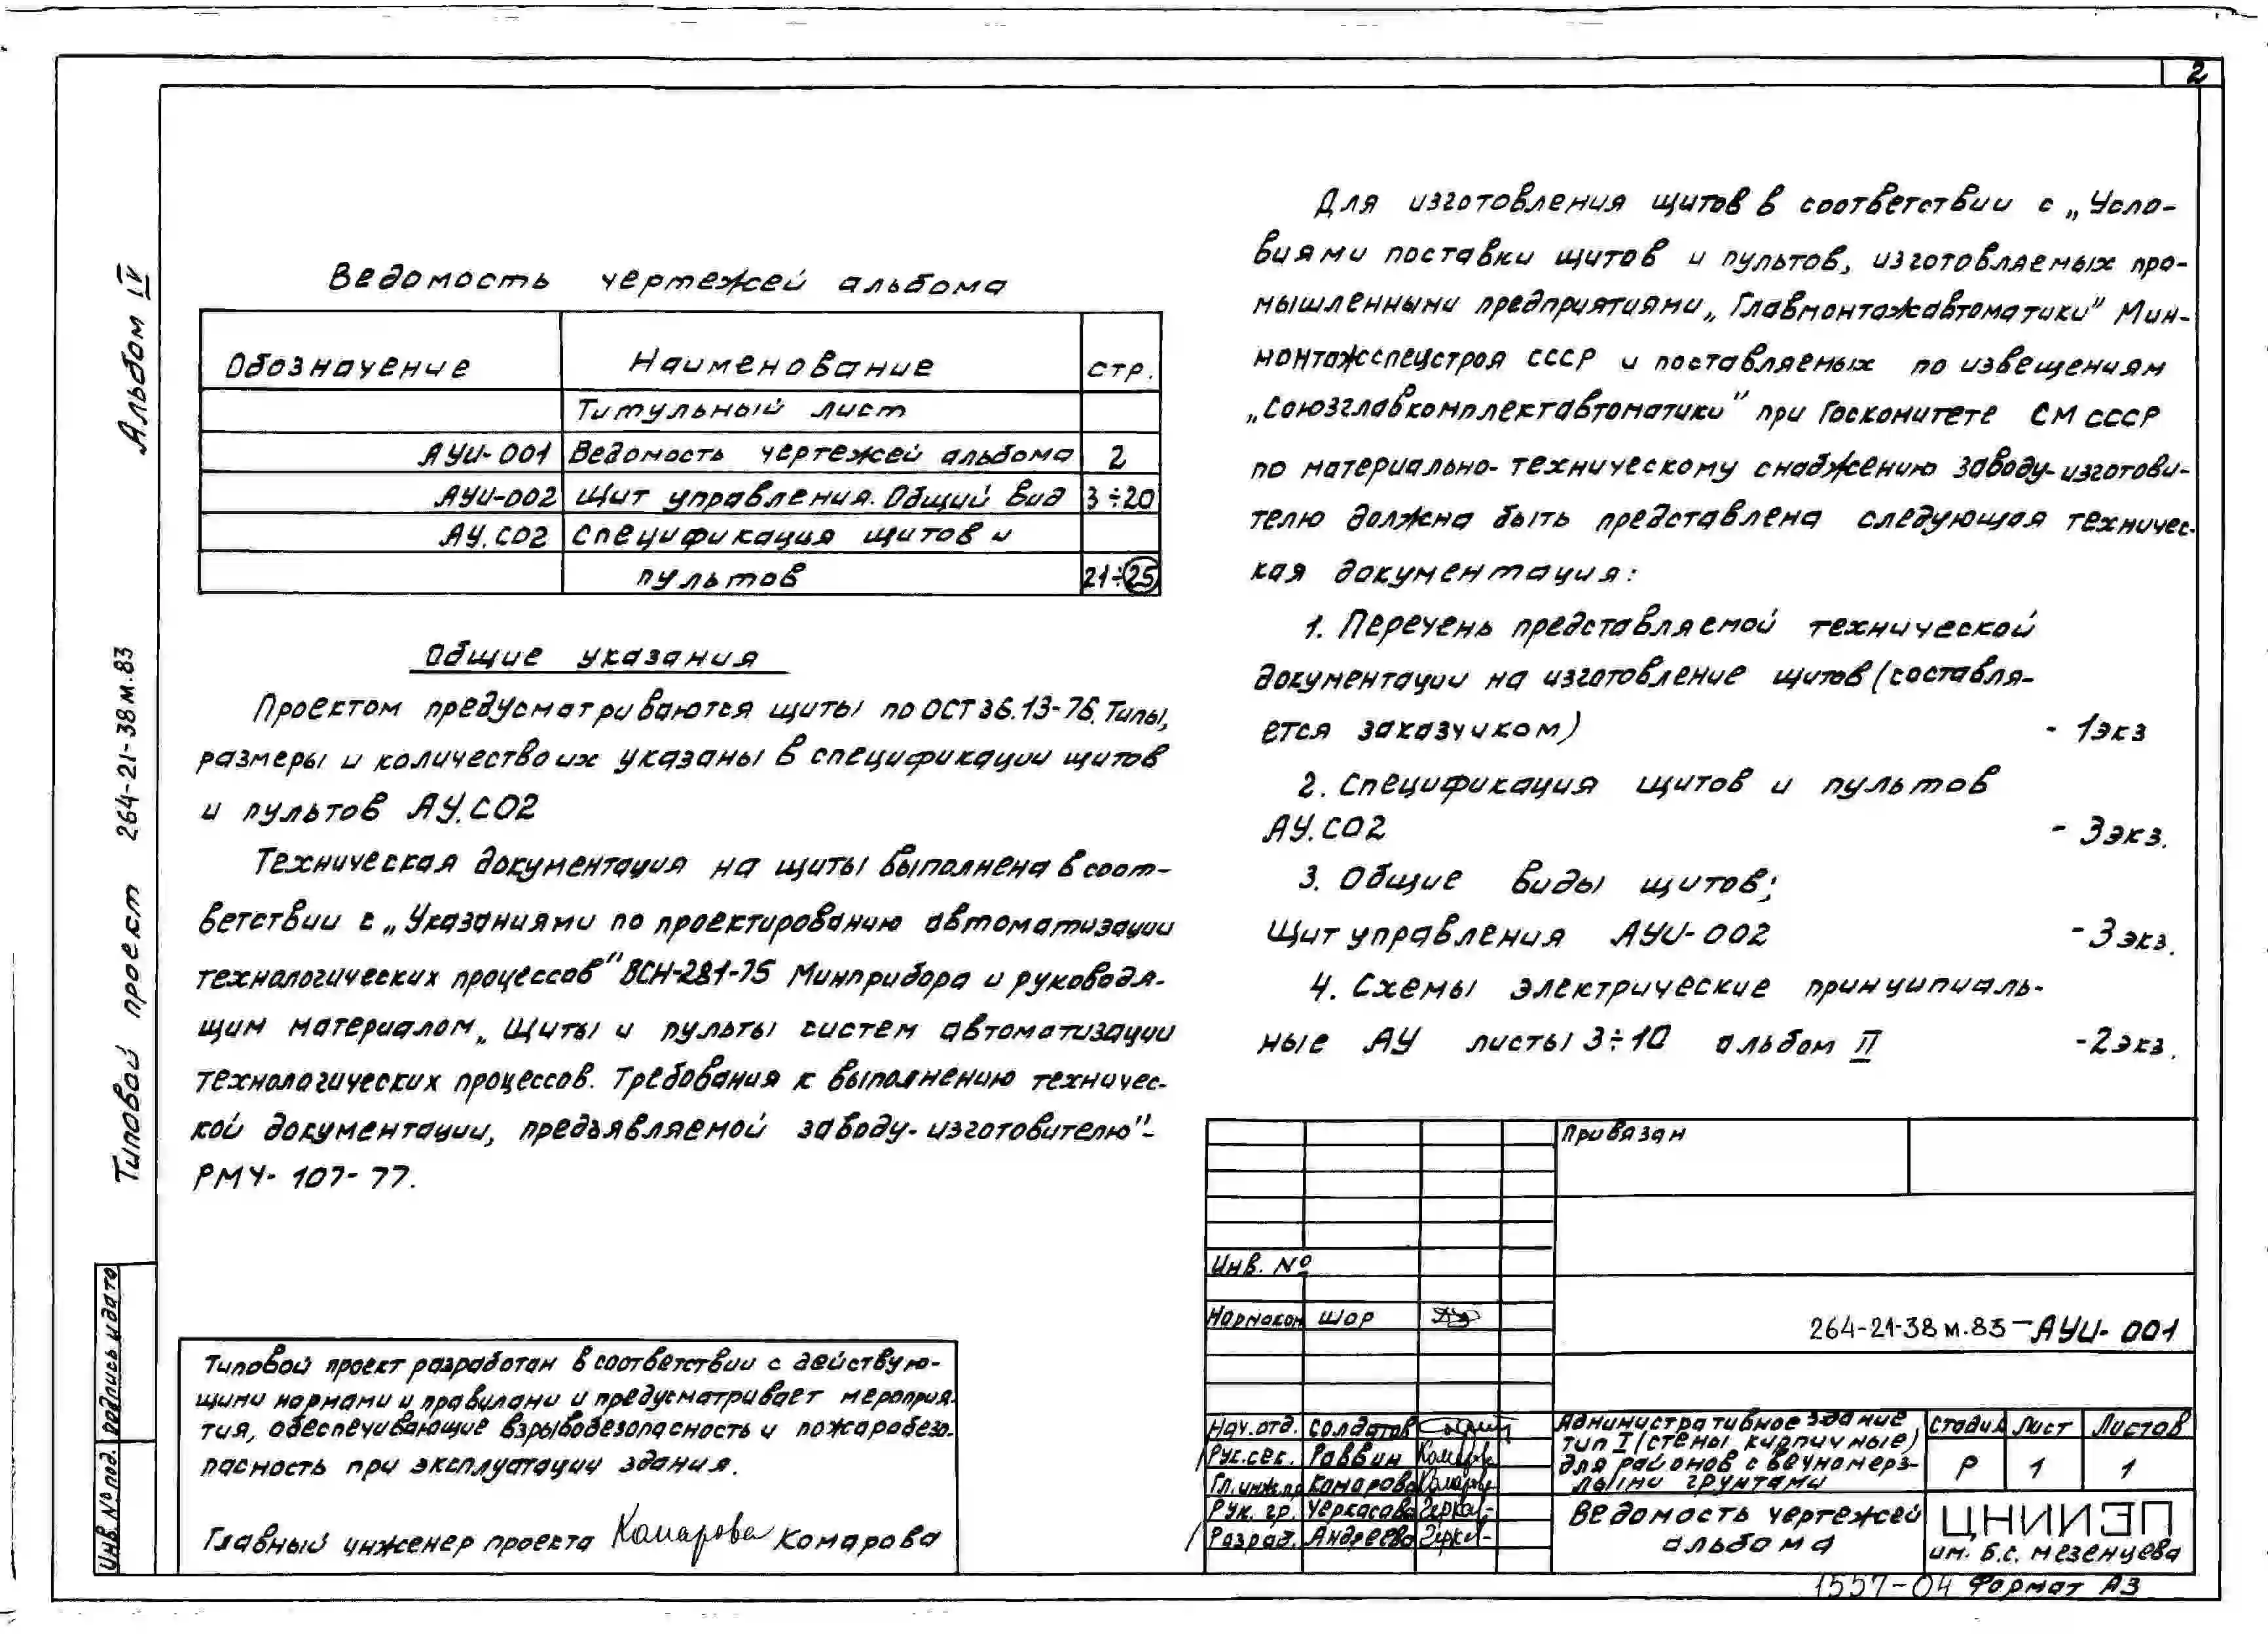 2
Альбом IV
Типовой проект 264-21-38м.83
Подпись и дата
Инв. № под.
Ведомость чертежей альбома
Обозначение Наименование стр.
Титульный лист
АУИ-001 Ведомость чертежей альбома 2
АУИ-002 Щит управления. Общий вид 3÷20
АУ.СО2 Спецификация щитов и
пультов 21÷25
Общие указания
Проектом предусматриваются щиты по ОСТ 36.13-76. Типы,
размеры и количество их указаны в спецификации щитов
и пультов АУ.СО2
Техническая документация на щиты выполнена в соот-
ветствии с „Указаниями по проектированию автоматизации
технологических процессов" ВСН-281-75 Минприбора и руководя-
щим материалом „Щиты и пульты систем автоматизации
технологических процессов. Требования к выполнению техничес-
кой документации, предъявляемой заводу-изготовителю"-
РМ4-107-77.
Типовой проект разработан в соответствии с действую-
щими нормами и правилами и предусматривает мероприя-
тия, обеспечивающие взрывобезопасность и пожаробезо-
пасность при эксплуатации здания.
Главный инженер проекта Комарова Комарова
Для изготовления щитов в соответствии с „Усло-
виями поставки щитов и пультов, изготовляемых про-
мышленными предприятиями „Главмонтажавтоматики" Мин-
монтажспецстроя СССР и поставляемых по извещениям
„Союзглавкомплектавтоматики" при Госкомитете СМ СССР
по материально-техническому снабжению заводу-изготови-
телю должна быть представлена следующая техничес-
кая документация:
1. Перечень представляемой технической
документации на изготовление щитов (составля-
ется заказчиком) - 1экз
2. Спецификация щитов и пультов
АУ.СО2 - 3экз.
3. Общие виды щитов;
Щит управления АУИ-002 - 3экз.
4. Схемы электрические принципиаль-
ные АУ листы 3÷10 альбом II - 2экз.
Привязан
Инв. №
Нормокон Шор
264-21-38м.83-АУИ-001
Нач.отд. Солдатов
Рук.сек. Раввин
Гл.инж.пр Комарова Комарова
Рук. гр. Черкасова
Разраб. Андреева
Административное здание
тип I (стены кирпичные)
для районов с вечномерз-
лыми грунтами
Стадия Лист Листов
Р 1 1
Ведомость чертежей
альбома
ЦНИИЭП
им. Б.С. Мезенцева
1557-04 Формат А3